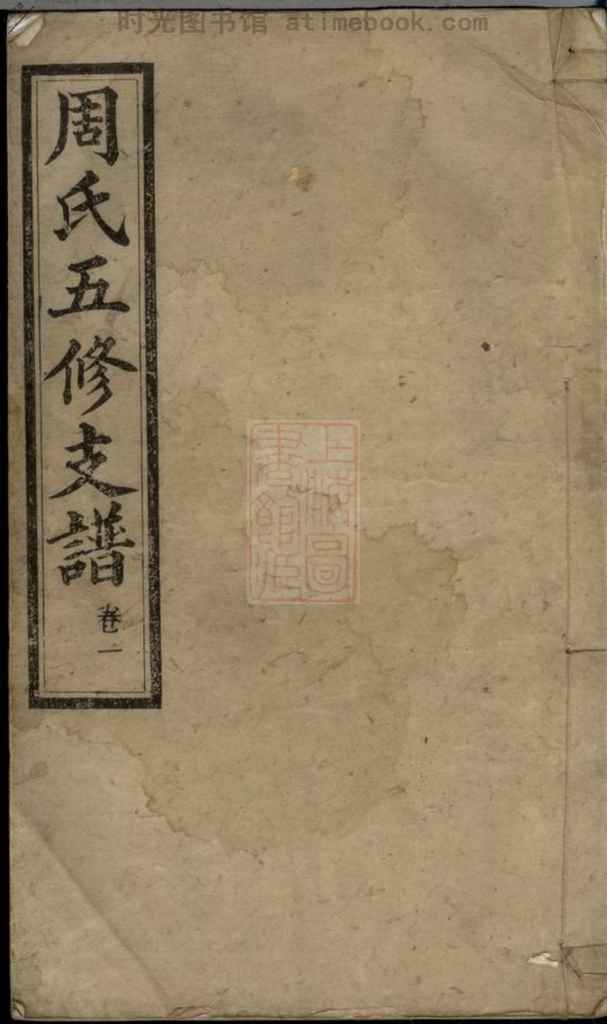 时光图书馆 atimebook.com
周氏五修支譜
卷一
上海圖
書館藏